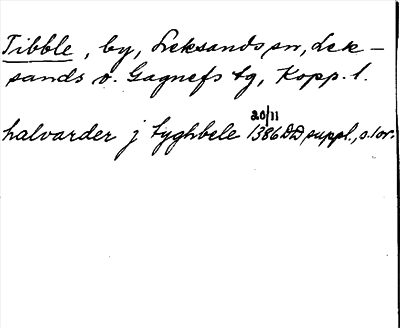 Tibble, by, Leksands sn, Lek-
sands o. Gagnefs tg, Kopp. l.
20/11
halvarder j tyghbele 1386 DD suppl., o. lor.